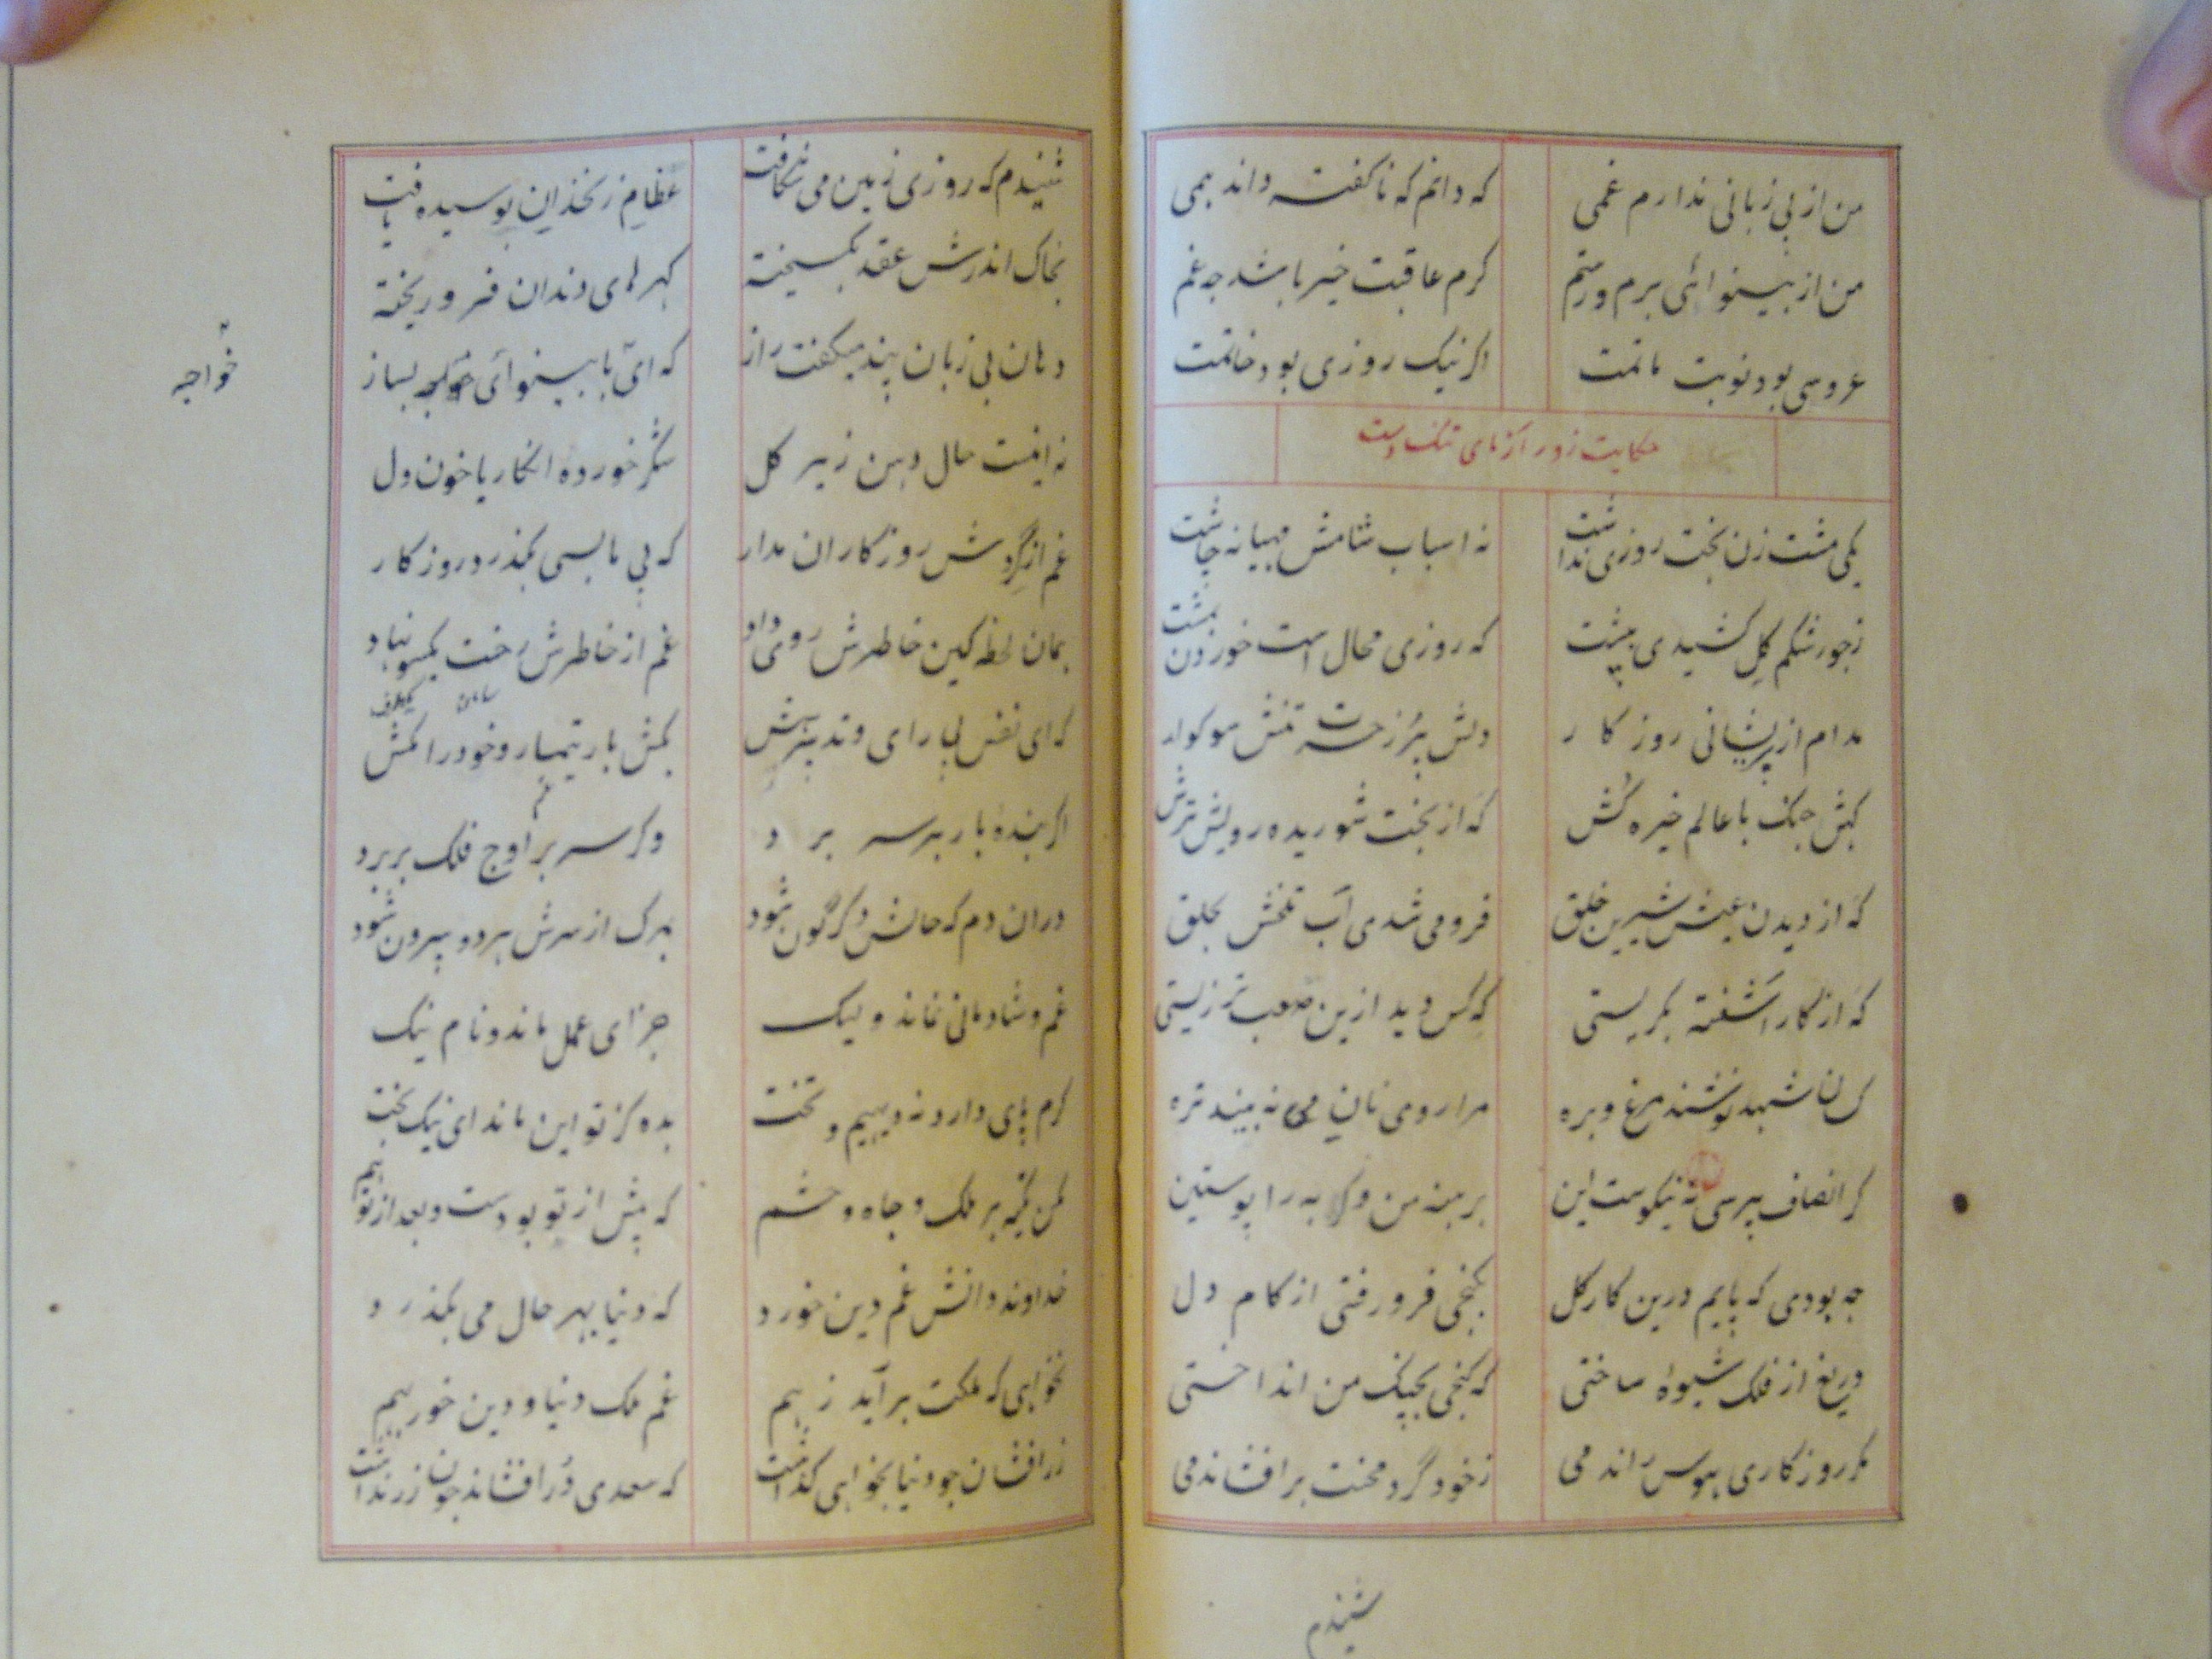 من از بی زبانی ندارم غمی که دانم که ناگفته داند همی
من از بینوائی برم ور ستم کرم عاقبت خیر باشد چه غم
عروسی بود نوبت ماتمت اگر نیک روزی بود خاتمت
حکایت زور آزمای تنگ دست
یکی مشت زن بخت روزی نداشت نه اسباب شامش مهیا نه چاشت
ز جور شکم گل کشیدی بپشت که روزی محال است خوردن بمشت
مدام از پریشانی روزگار دلش پر ز حسرت تنش سوکوار
گهش جنک با عالم خیره کش که از بخت شوریده رویش ترش
که از دیدن عیش شیرین خلق فرو می شدی آب تلخش بحلق
که از کار آشفته بگریستی که کس دید ازین صعب تر زیستی
کسان شهد نوشند مرغ و بره مرا روی نان می نه بیند تره
گر انصاف پرسی نه نیکوست این برهنه من و گربه را پوستین
چه بودی که پایم درین کار گل بگنجی فرو رفتی از کام دل
دریغ از فلک شیوهٔ ساختی که گنجی بچنک من انداختی
مگر روزگاری هوس راندمی ز خود گرد محنت برافشاندمی
شنیدم
شنیدم که روزی زمین می شکافت عظام زنخدان پوسیده یافت
بخاک اندرش عقد بگسیخته گهرهای دندان فرو ریخته
دهان بی زبان پند میگفت راز که ای با بینوائی بساز
خواجه
نه اینست حال دهن زیر گل شکر خورده انگار یا خون دل
غم از گردش روزکاران مدار که بی ما بسی بگذرد روزکار
همان لحظه کین خاطرش روی داد غم از خاطرش رخت یکسو نهاد
که ای نفس بی رای و تدبیر و هش بکش بار تیمار و خود را مکش
اگر بندهٔ بار بر سر برد وگر سر بر اوج فلک بر برد
دران دم که حالش دگرگون شود بمرگ از سرش هردو بیرون شود
غم و شادمانی نماند ولیک جزای عمل ماند و نام نیک
کرم پای دارد نه دیهیم و تخت بده کز تو این ماند ای نیک بخت
مکن تکیه بر ملک و جاه و حشم که پیش از تو بودست و بعد از تو هم
خداوند دانش غم دین خورد که دنیا بهر حال می بگذرد
نخواهی که ملکت برآید ز هم غم ملک دنیا و دین خور بهم
زر افشان چو دنیا بخواهی گذاشت که سعدی در افشاند چون زر نداشت